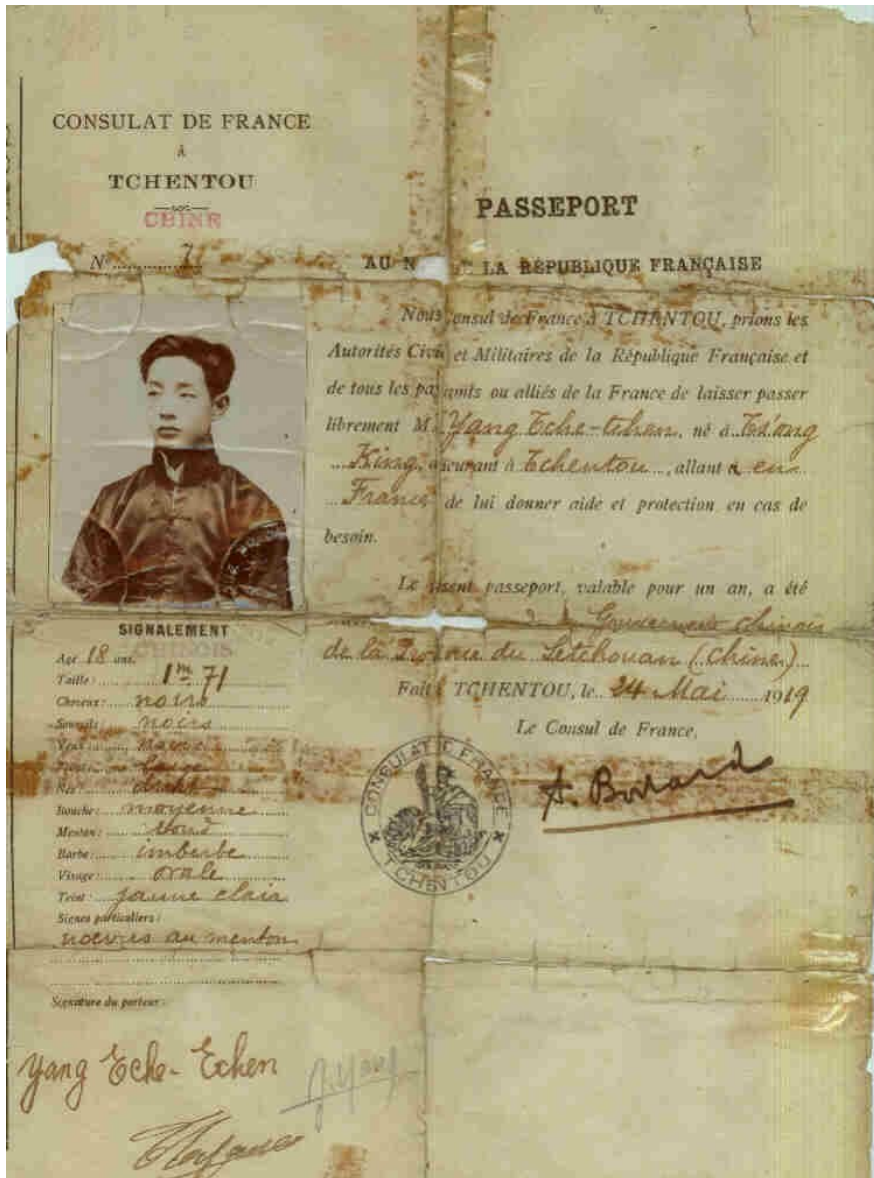 CONSULAT DE FRANCE
à
TCHENTOU
CHINE
N° 7
PASSEPORT
AU N LA RÉPUBLIQUE FRANÇAISE
Nous onsul de France à TCHENTOU, prions les
Autorités Civil et Militaires de la République Française et
de tous les pay amis ou alliés de la France de laisser passer
librement M. Yang Tche-tchen, né à Ts'ong
King, demeurant à Tchentou, allant à en
France de lui donner aide et protection en cas de
besoin.
Le résent passeport, valable pour un an, a été
Gouvernement chinois
de la Province du Setchouan (Chine)
Fait à TCHENTOU, le 24 Mai 1919
Le Consul de France,
A. Bodard
CONSULAT DE FRANCE
TCHENTOU
SIGNALEMENT
CHINOIS
Age 18 ans.
Taille: 1m 71
Cheveux: noirs
Sourcils: noirs
Yeux
Front: large
Nez: droit
Bouche: moyenne
Menton: rond
Barbe: imberbe
Visage: ovale
Teint: jaune clair
Signes particuliers:
noevus au menton
Signature du porteur:
Yang Tche-Tchen
J. Yang